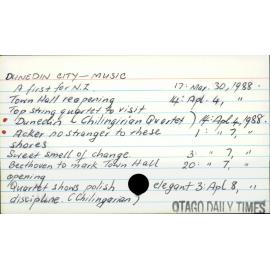 DUNEDIN CITY — MUSIC
A first for N.Z. 17: Mar. 30, 1988.
Town Hall reopening 14: Apl. 4, "
Top string quartet to visit
Dunedin (Chilingirian Quartet) 14: Apl. 4, 1988.
Acker no stranger to these 1: " 7, "
shores
Sweet smell of change 3: " 7, "
Beethoven to mark Town Hall 20: " 7, "
opening
Quartet shows polish elegant 3: Apl. 8, "
discipline (Chilingarian)
OTAGO DAILY TIMES